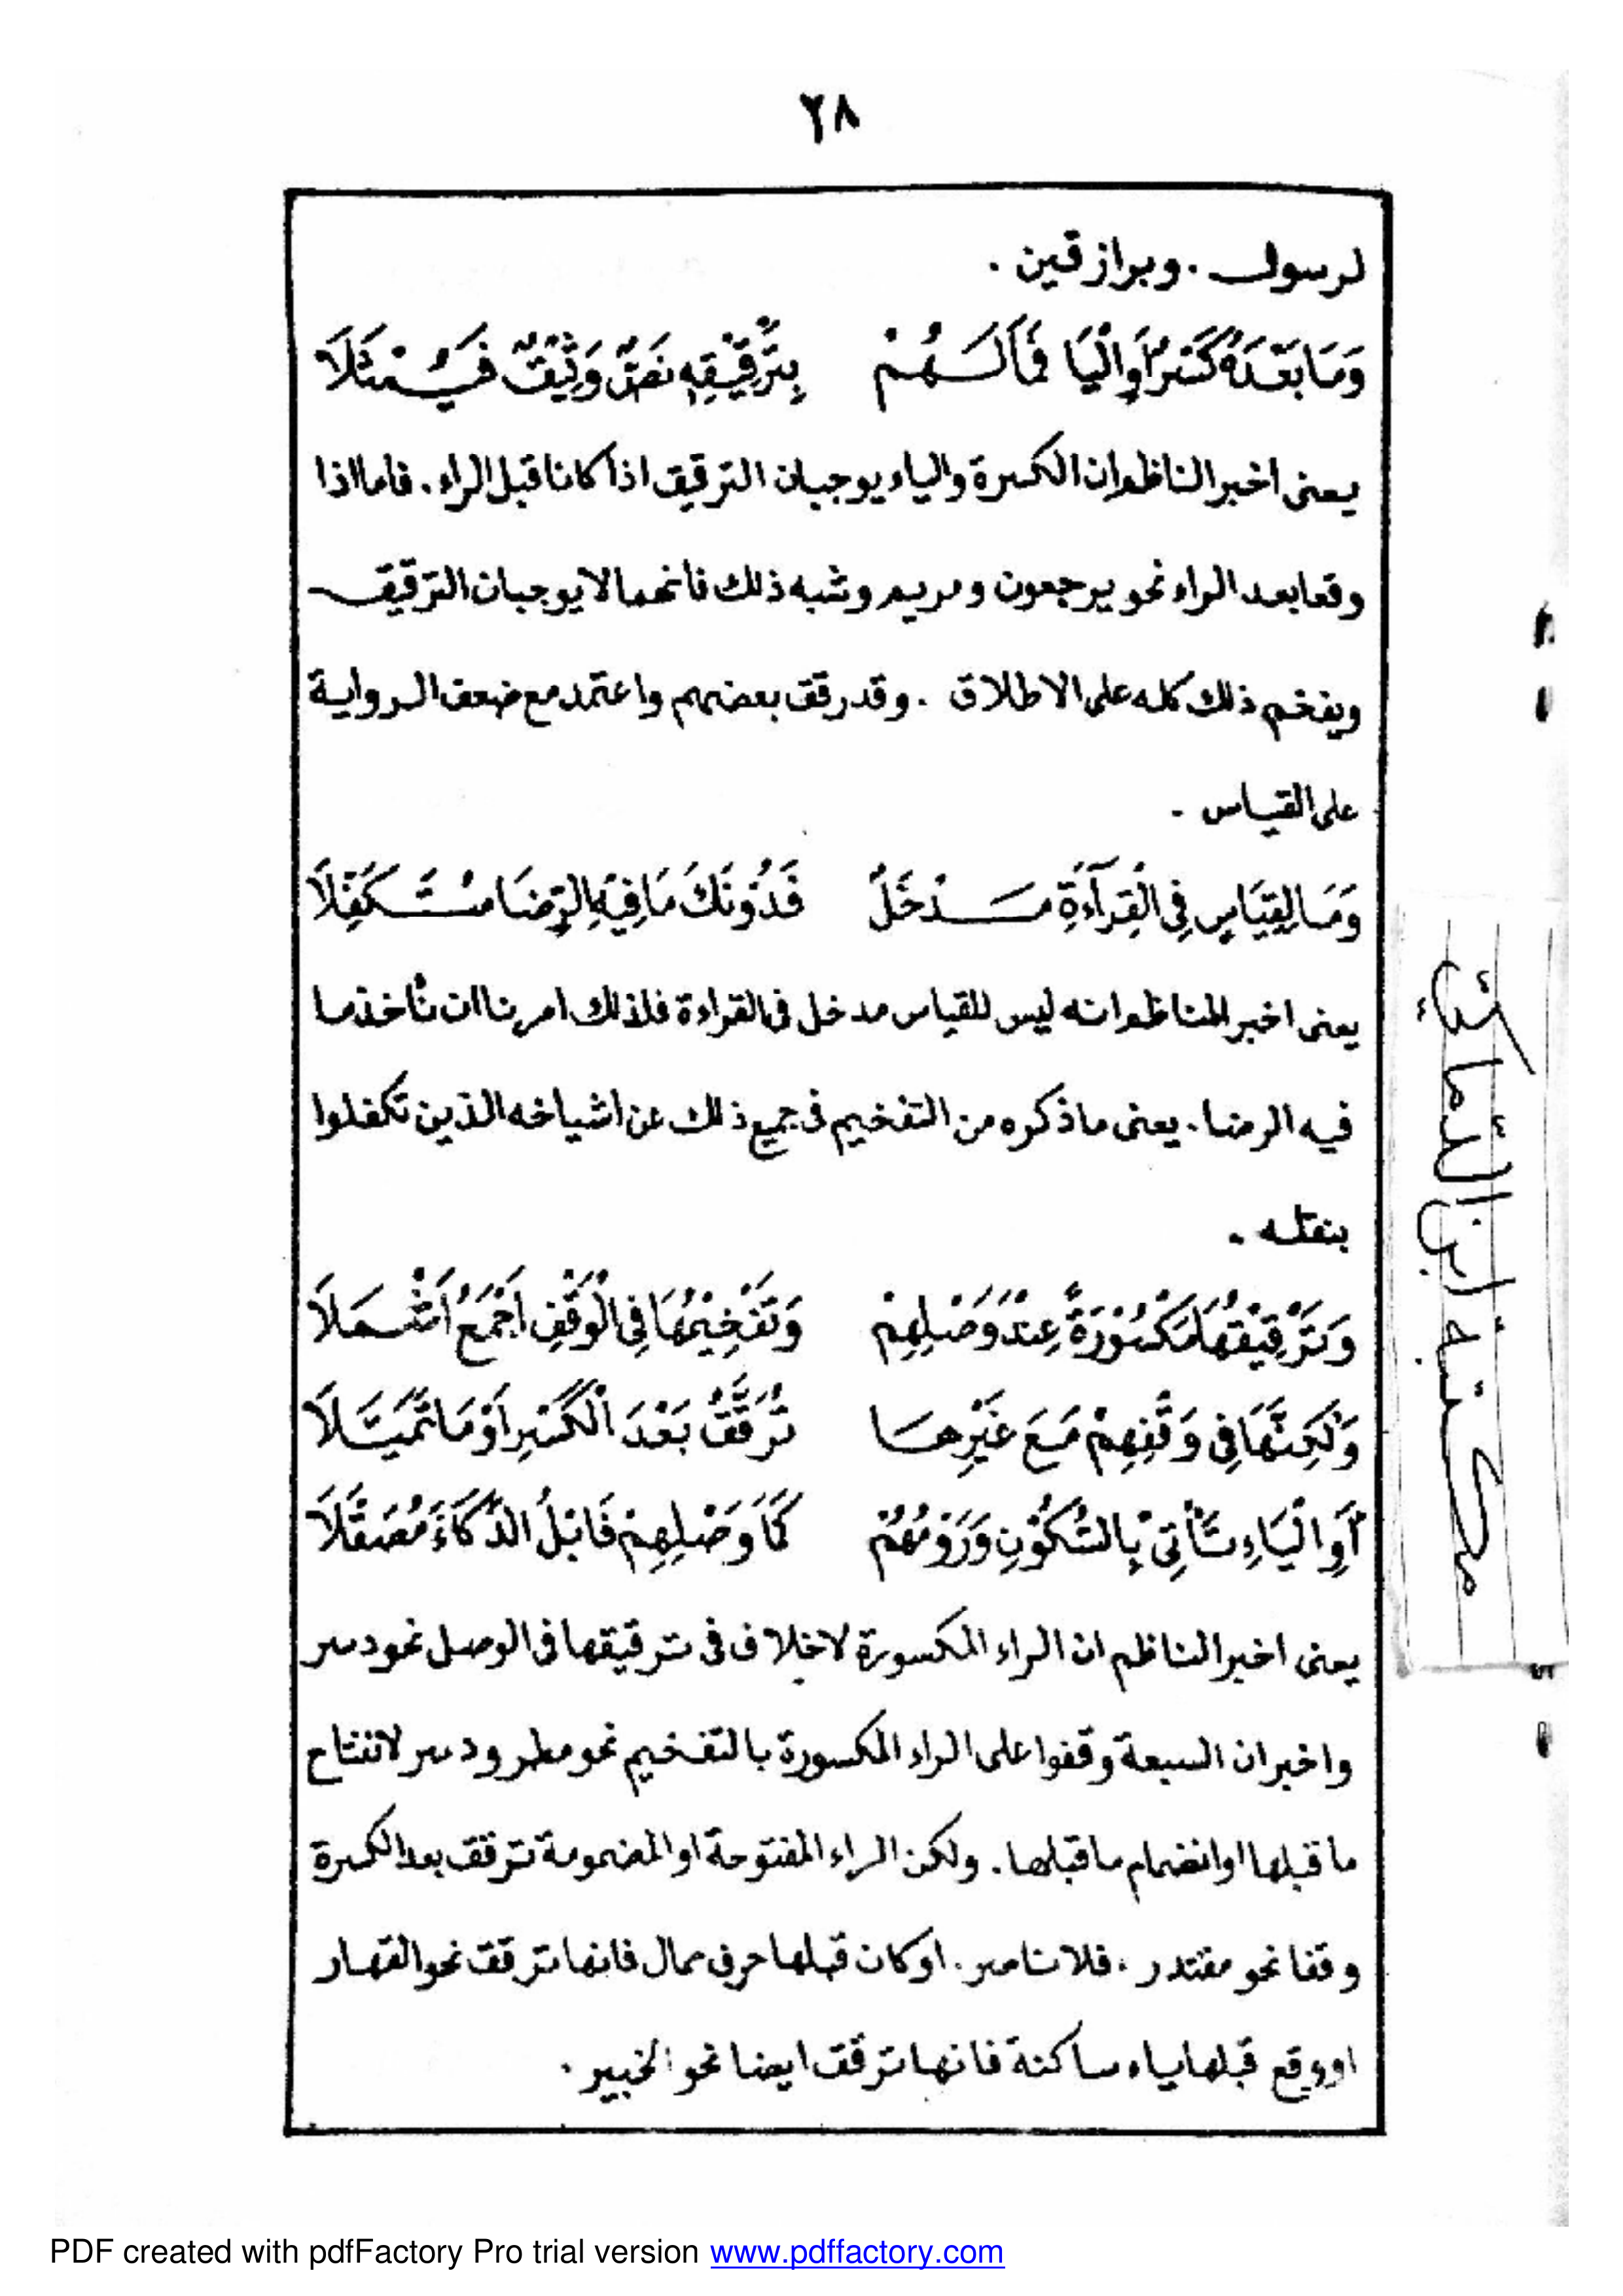 ٢٨
لرسول . وبرازقين .
وَمَا بَعْدَهُ كَسْرٌ أَوِ الْيَا فَمَا لَهُمْ بِتَرْقِيْقِهِ نَصٌّ وَثِيْقٌ فَيَمْثُلَا
يعنى اخبر الناظم ان الكسرة والياء يوجبان الترقيق اذا كانا قبل الراء . فاما اذا
وقعا بعد الراء نحو يرجعون ومريم وشبه ذلك فانهما لا يوجبان الترقيق
ويفخم ذلك كله على الاطلاق . وقد رقق بعضهم واعتمد مع ضعف الرواية
على القياس .
وَمَا لِقِيَاسٍ فِى الْقِرَآءَةِ مَدْخَلٌ فَدُوْنَكَ مَا فِيْهِ الرِّضَا مُتَكَفِّلَا
يعنى اخبر الناظم انه ليس للقياس مدخل فى القراءة فلذلك امرنا ان نأخذ ما
فيه الرضا . يعنى ما ذكره من التفخيم فى جميع ذلك عن اشياخه الذين تكفلوا
بنقله .
وَتَرْقِيْقُهَا مَكْسُوْرَةً عِنْدَ وَصْلِهِمْ وَتَفْخِيْمُهَا فِى الْوَقْفِ اَجْمَعُ اَشْمَلَا
وَلٰكِنَّهَا فِى وَقْفِهِمْ مَعَ غَيْرِهَا تُرَقَّقُ بَعْدَ الْكَسْرِ اَوْ مَا تَمَيَّلَا
أَوِ الْيَاءِ تَأْتِىْ بِالسُّكُوْنِ وَرَوْمُهُمْ كَمَا وَصْلِهِمْ فَابْلُ الذَّكَاءَ مُصَقَّلَا
يعنى اخبر الناظم ان الراء المكسورة لا خلاف فى ترقيقها فى الوصل نحو دسر
واخبر ان السبعة وقفوا على الراء المكسورة بالتفخيم نحو مطر ودسر لانفتاح
ما قبلها او انضمام ما قبلها . ولكن الراء المفتوحة او المضمومة ترقق بعد الكسرة
وقفا نحو مقتدر . فلا ناصر . او كان قبلها حرف ممال فانها ترقق نحو القهار
او وقع قبلها ياء ساكنة فانها ترقق ايضا نحو الخبير .
مكتبة ابن الدماك
PDF created with pdfFactory Pro trial version www.pdffactory.com